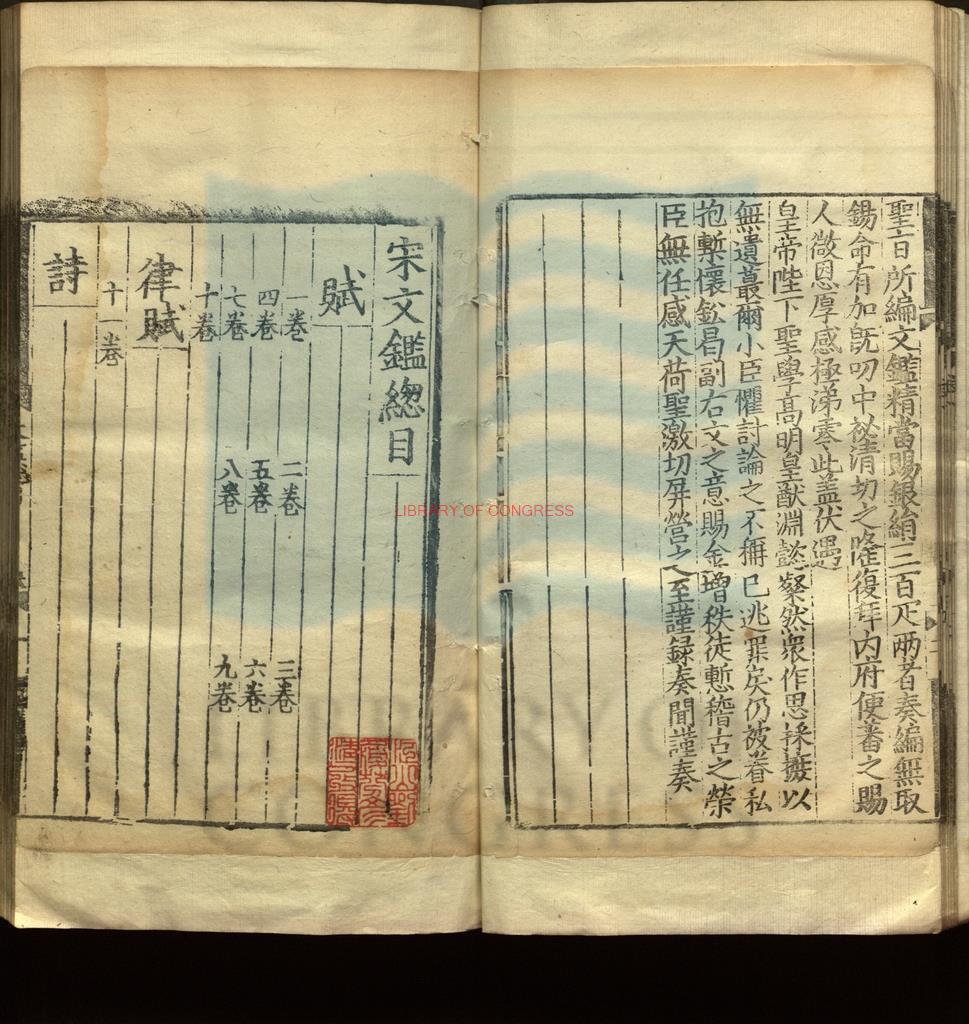 聖旨所編文鑑精當賜銀絹三百疋兩者奏編無取
錫命有加旣叨中祕清切之隆復拜內府便蕃之賜
人微恩厚感極涕零此蓋伏遇
皇帝陛下聖學高明皇猷淵懿粲然衆作思採摭以
無遺蕞爾小臣懼討論之不稱已逃罪戾仍被眷私
抱槧懷鉛曷副右文之意賜金增秩徒慙稽古之榮
臣無任感天荷聖激切屏營之至謹録奏聞謹奏
宋文鑑總目
賦
一卷 二卷 三卷
四卷 五卷 六卷
七卷 八卷 九卷
十卷
律賦
十一卷
詩
LIBRARY OF CONGRESS